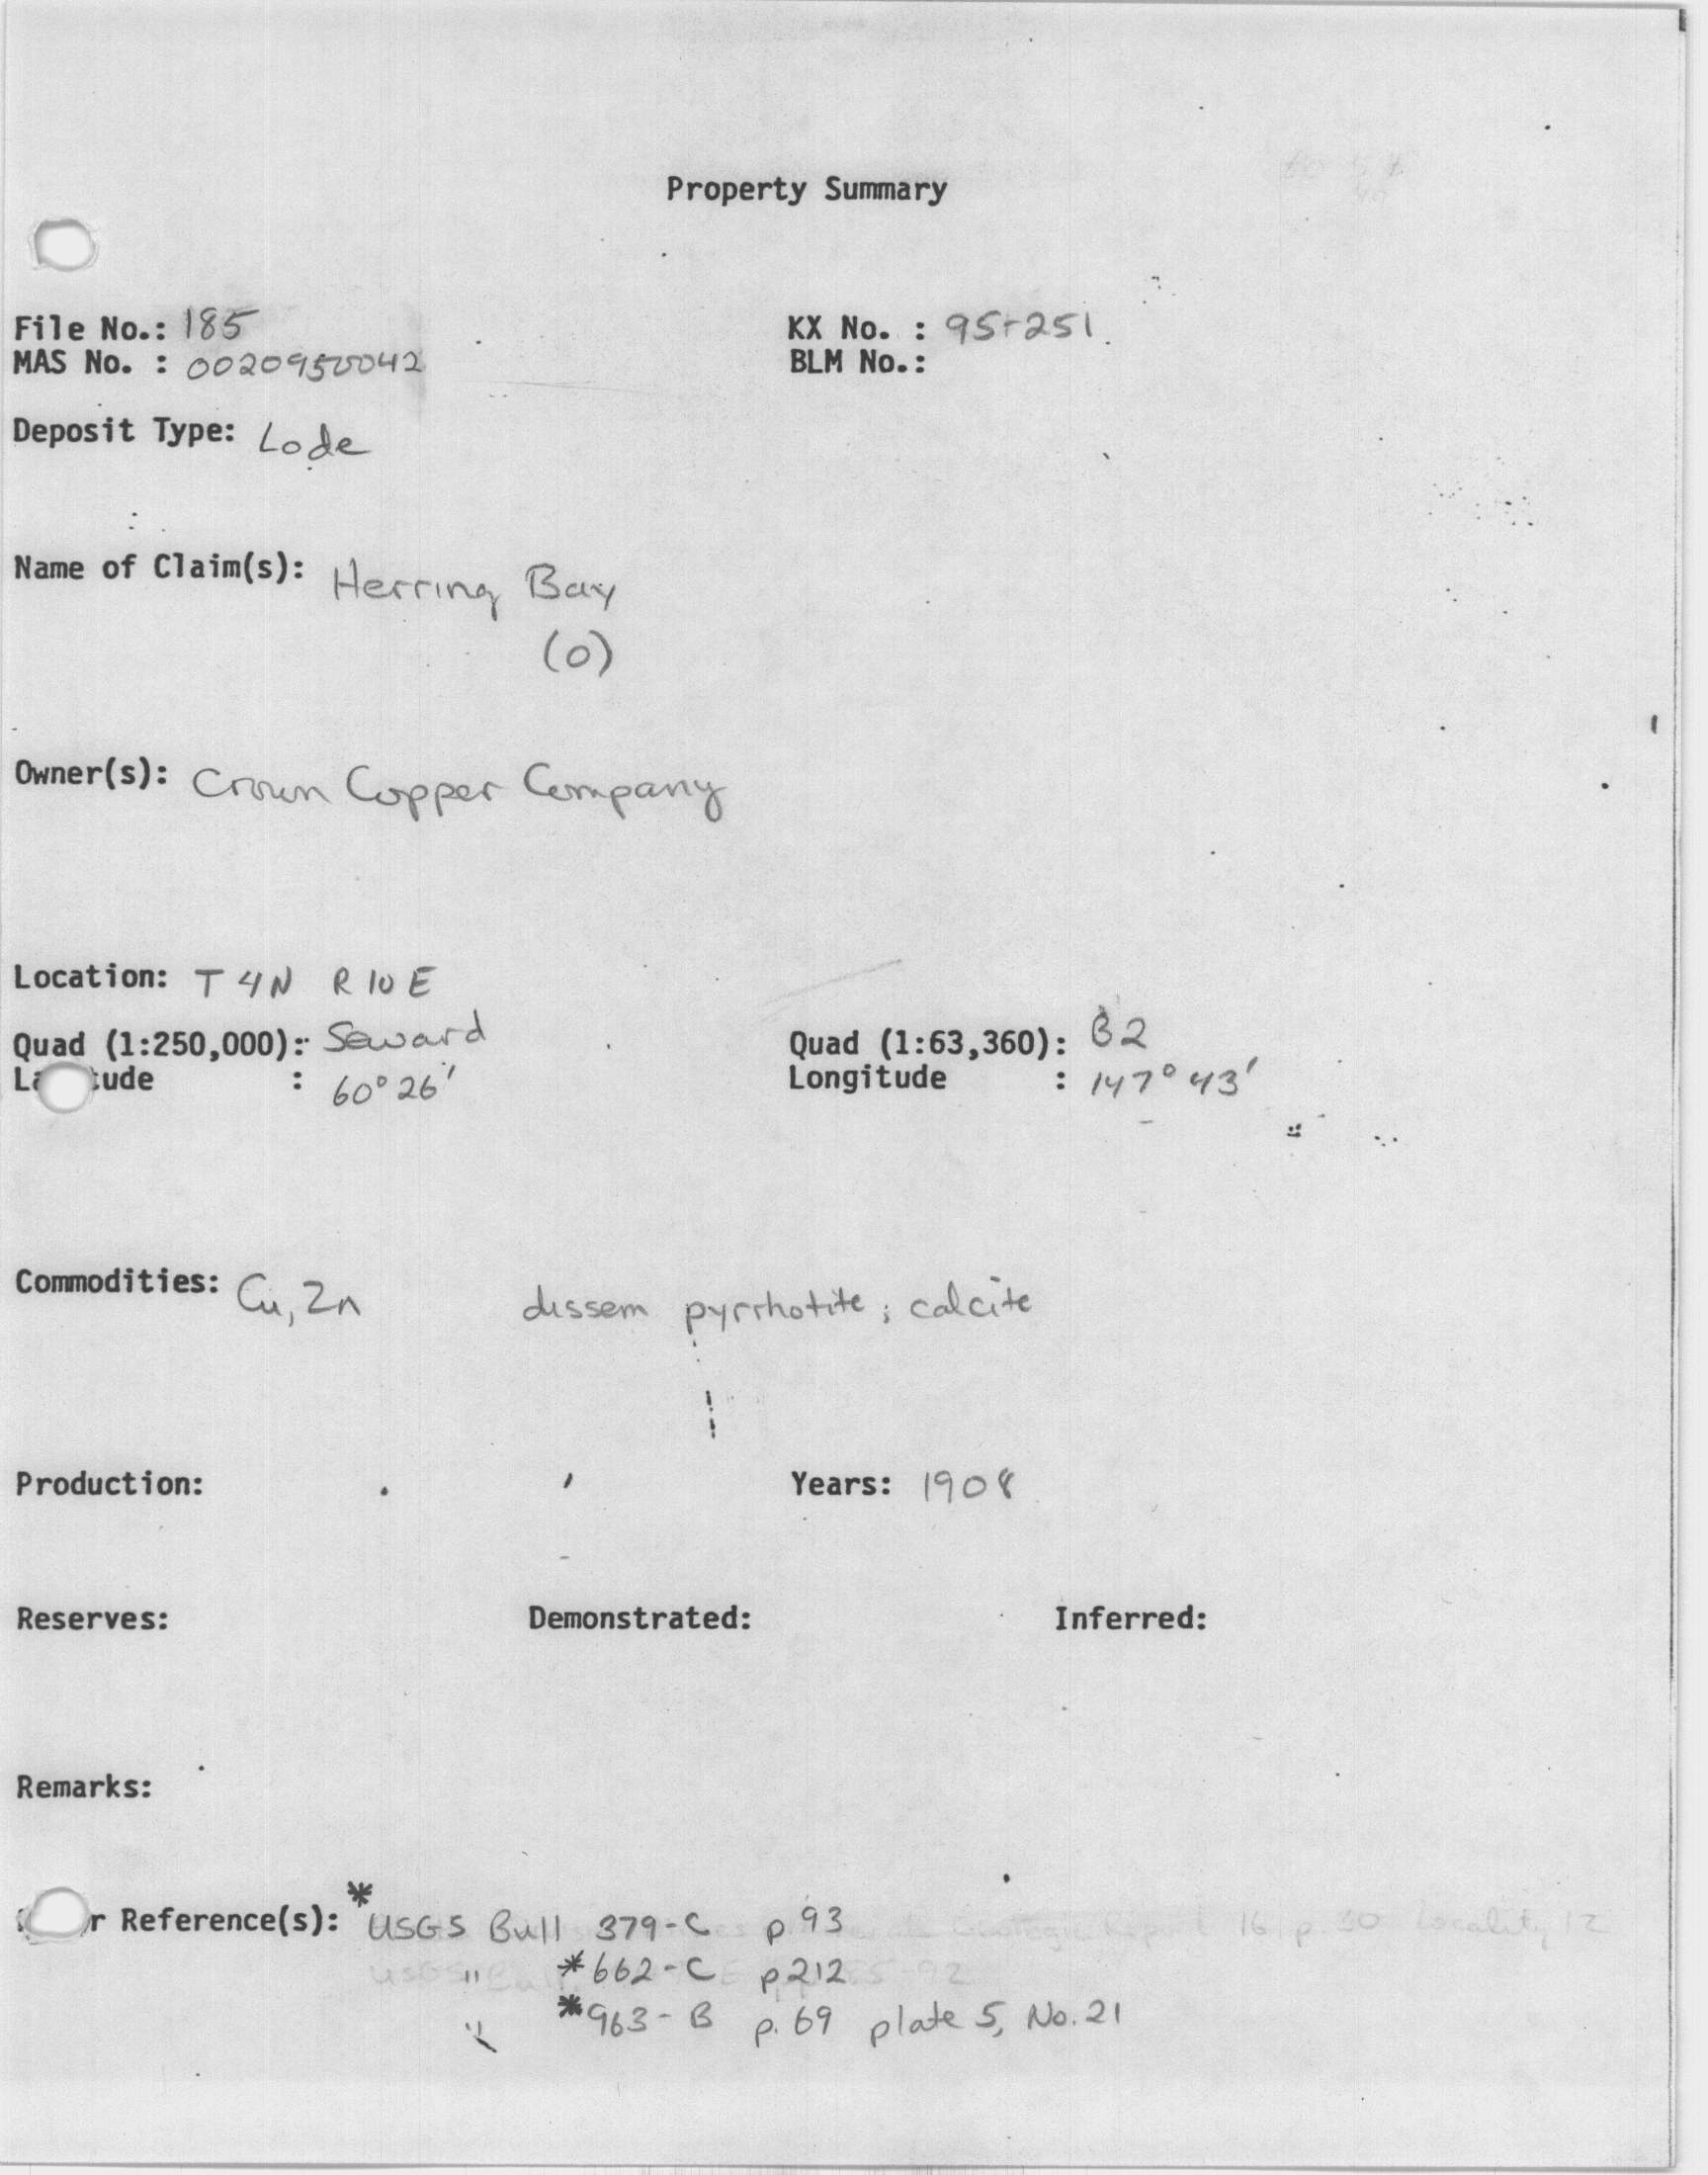 Property Summary
File No.: 185 KX No. : 95-251
MAS No. : 0020950042 BLM No.:
Deposit Type: Lode
Name of Claim(s): Herring Bay
(0)
Owner(s): Crown Copper Company
Location: T 4N R 10 E
Quad (1:250,000): Seward Quad (1:63,360): B2
: 60° 26' Longitude : 147° 43'
Commodities: Cu, Zn dissem pyrrhotite; calcite
Production: Years: 1908
Reserves: Demonstrated: Inferred:
Remarks:
Reference(s): *USGS Bull 379-C p 93 16 p 30 Locality 12
" *662-C p 212
" *963-B p. 69 plate 5, No. 21